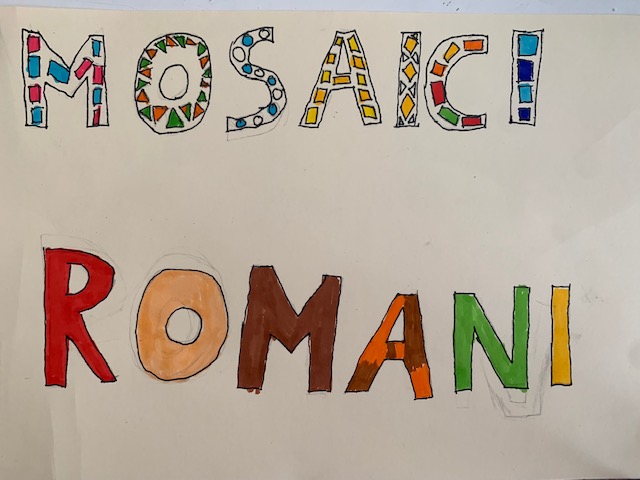 MOSAICI
ROMANI